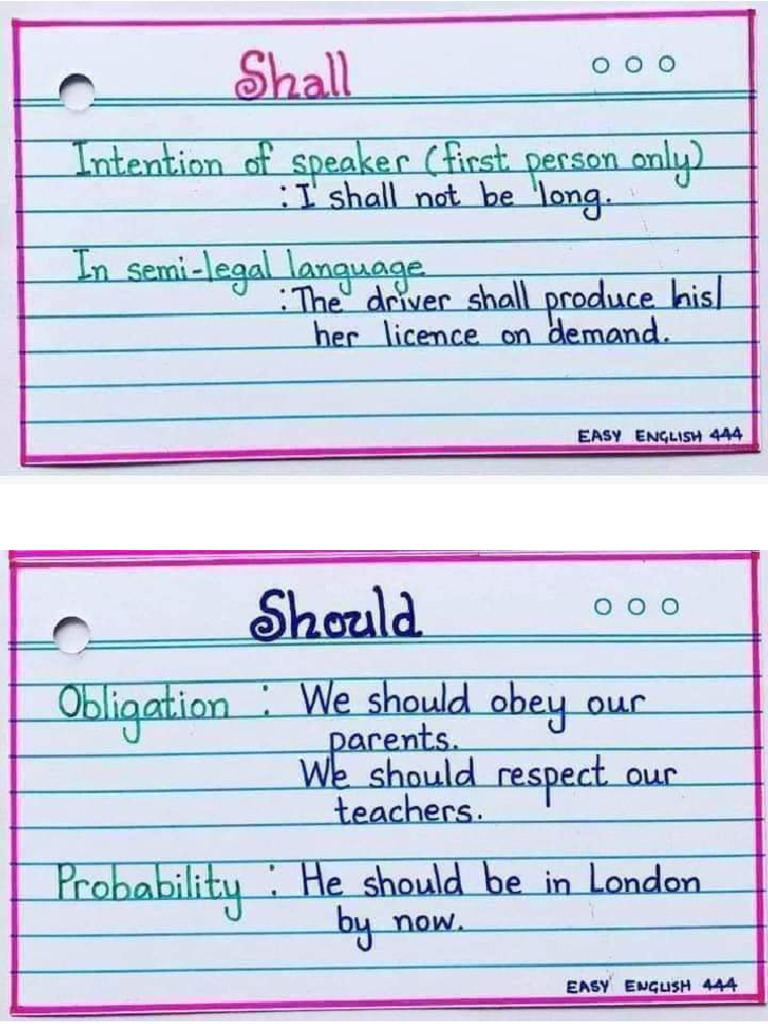 Shall
Intention of speaker (first person only)
: I shall not be long.
In semi-legal language
: The driver shall produce his/
her licence on demand.
EASY ENGLISH 444
Should
Obligation : We should obey our
parents.
We should respect our
teachers.
Probability : He should be in London
by now.
EASY ENGLISH 444